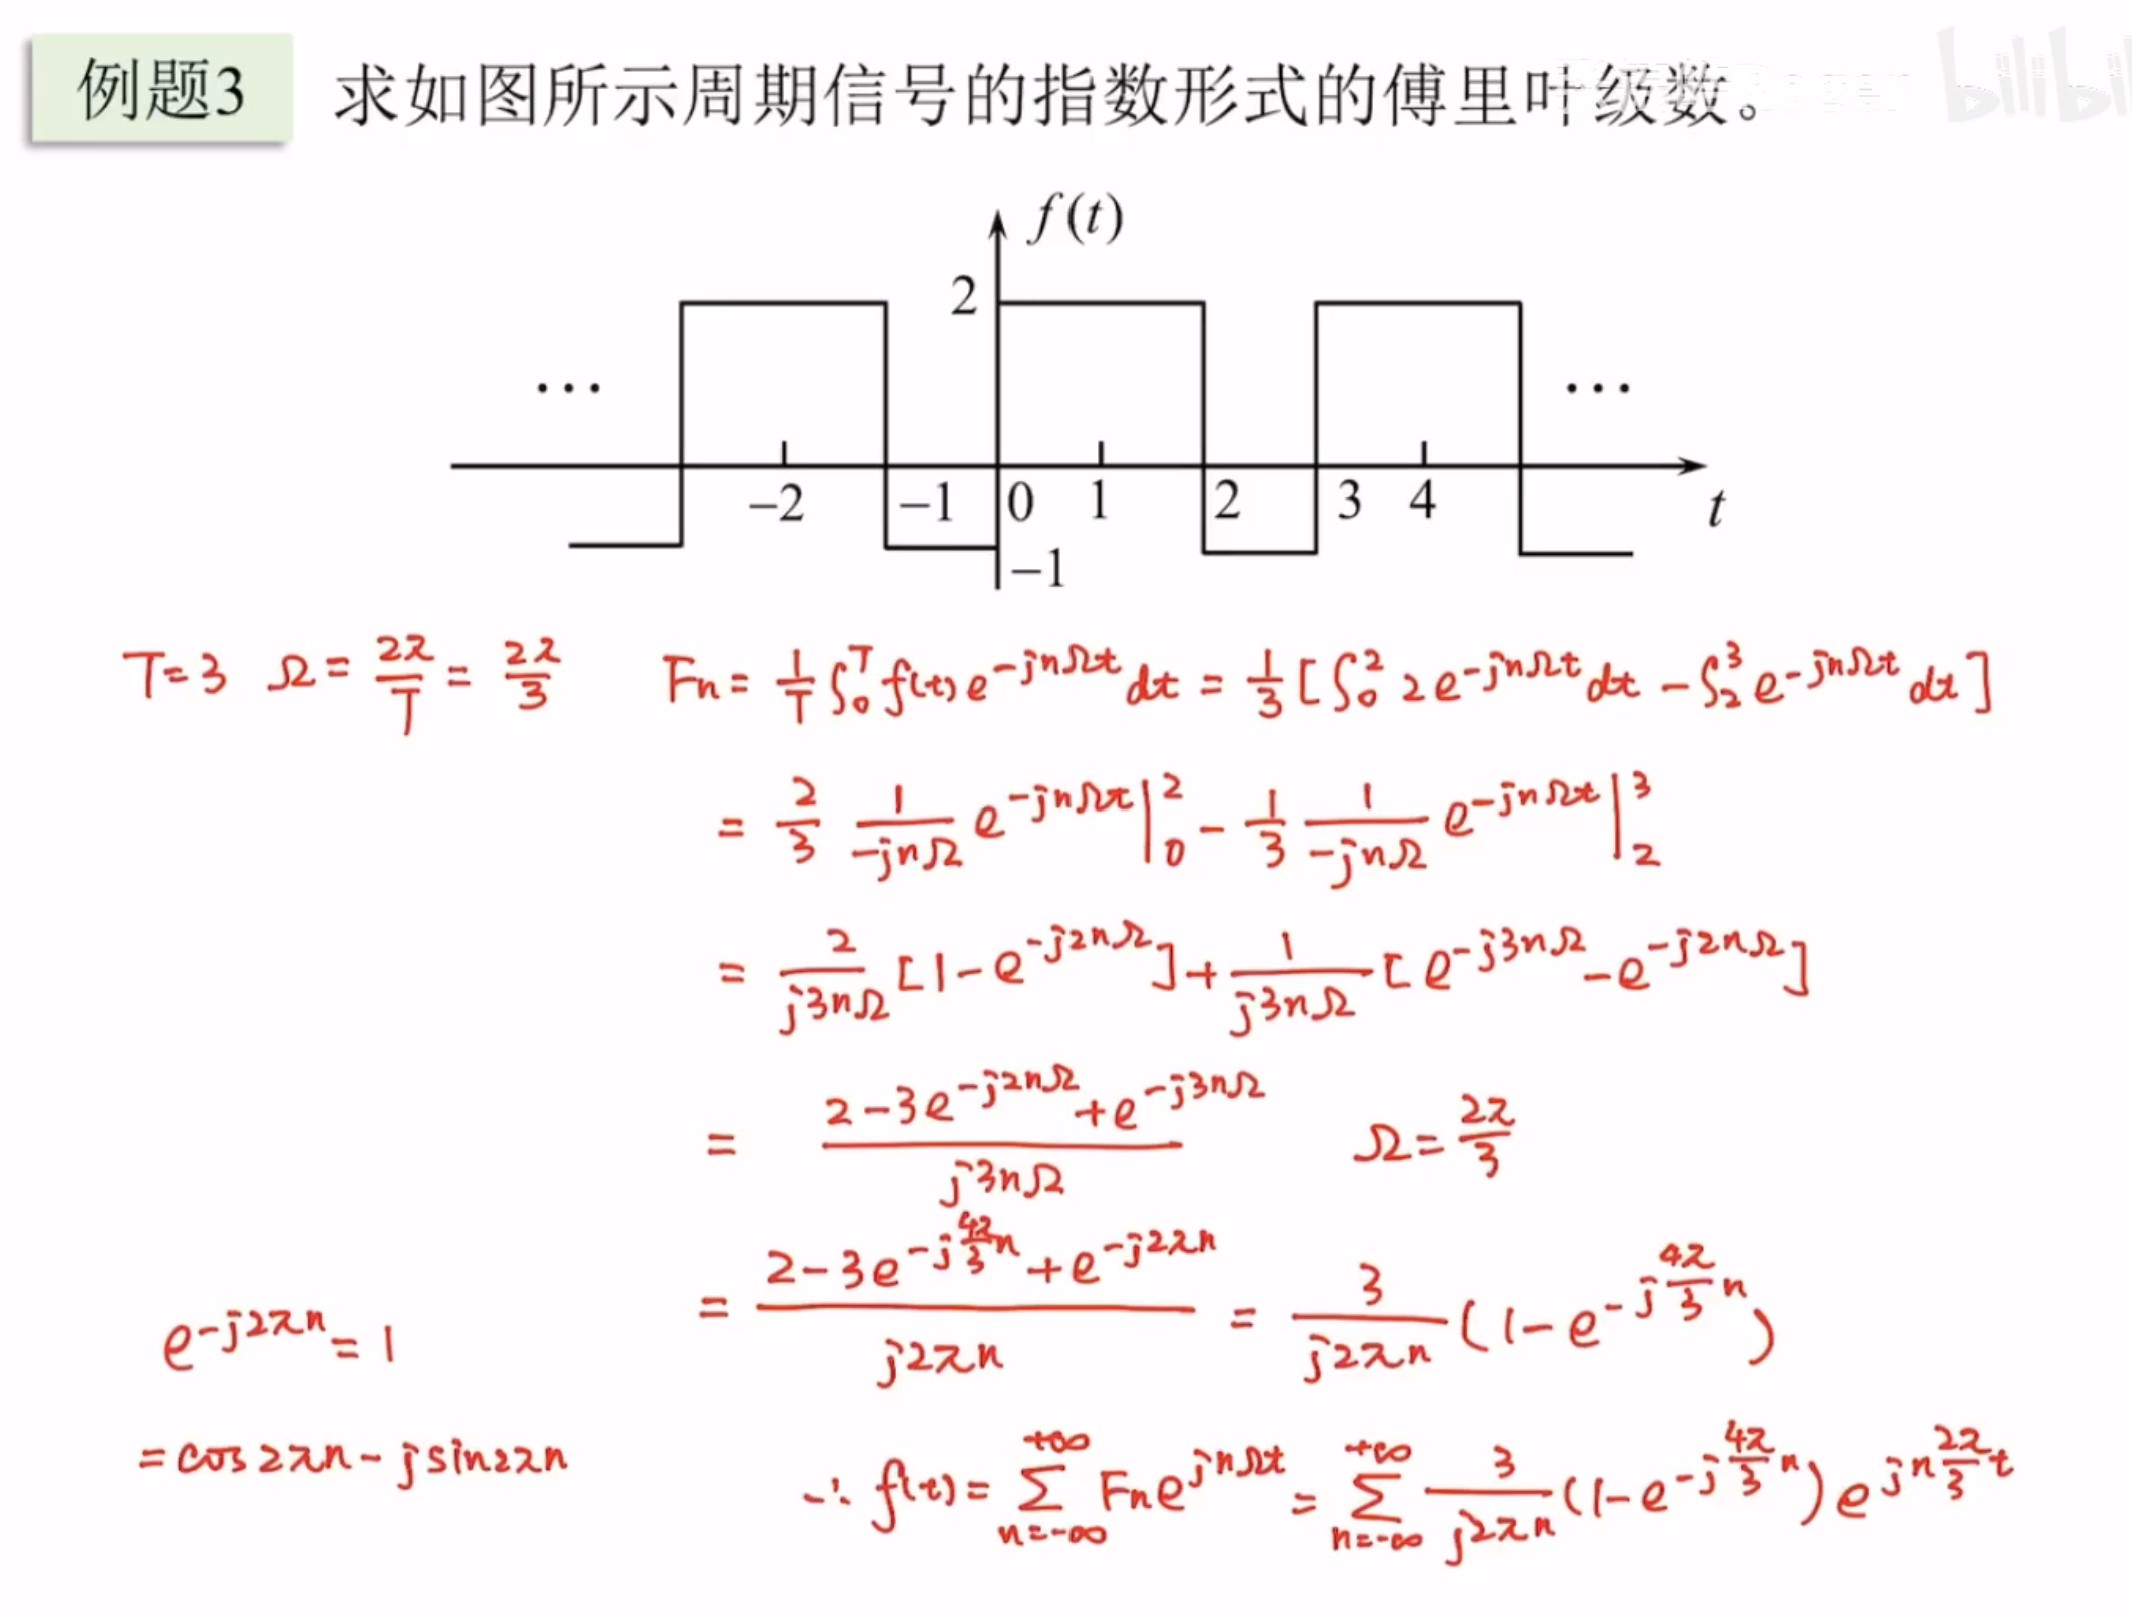 例题3 求如图所示周期信号的指数形式的傅里叶级数。
bilibili
f(t)
2
... ...
-2 -1 0 1 2 3 4 t
-1
T=3 Ω=2π/T=2π/3 Fn=1/T∫₀ᵀf(t)e^{-jnΩt}dt=1/3[∫₀²2e^{-jnΩt}dt-∫₂³e^{-jnΩt}dt]
=2/3 1/(-jnΩ) e^{-jnΩt}|₀² - 1/3 1/(-jnΩ) e^{-jnΩt}|₂³
=2/(j3nΩ)[1-e^{-j2nΩ}]+1/(j3nΩ)[e^{-j3nΩ}-e^{-j2nΩ}]
=(2-3e^{-j2nΩ}+e^{-j3nΩ})/(j3nΩ) Ω=2π/3
=(2-3e^{-j4π/3n}+e^{-j2πn})/(j2πn)=3/(j2πn)(1-e^{-j4π/3n})
e^{-j2πn}=1
=cos2πn-jsin2πn
∴f(t)=∑_{n=-∞}^{+∞}Fne^{jnΩt}=∑_{n=-∞}^{+∞}3/(j2πn)(1-e^{-j4π/3n})e^{jn2π/3t}